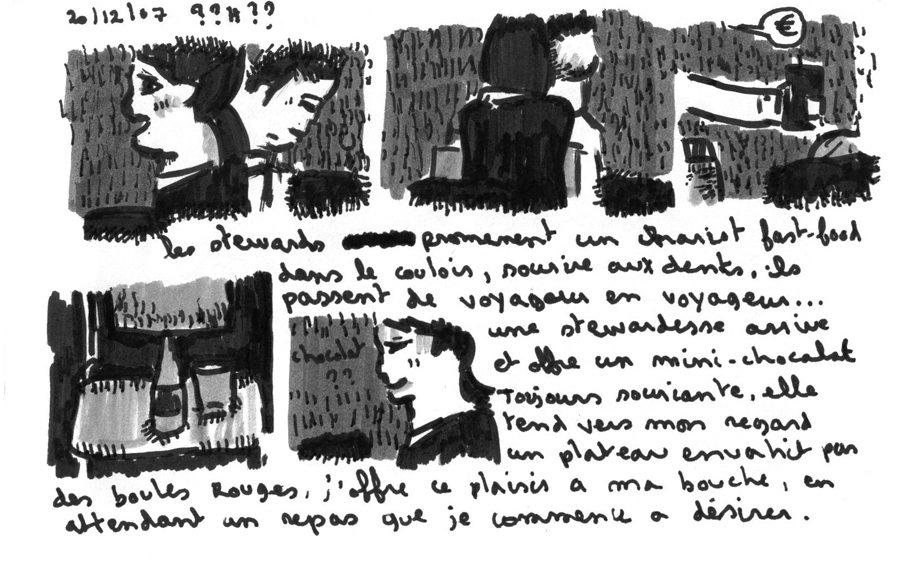 20/12/07 ??H??
€
les stewards promenent un chariot fast-food
dans le couloir, sourire aux dents, ils
passent de voyageur en voyageur...
une stewardesse arrive
et offre un mini-chocolat
chocolat
??
Toujours souriante, elle
tend vers mon regard
un plateau envahit pas
des boules Rouges, j'offre ce plaisir a ma bouche, en
attendant un repas que je commence a désirer.